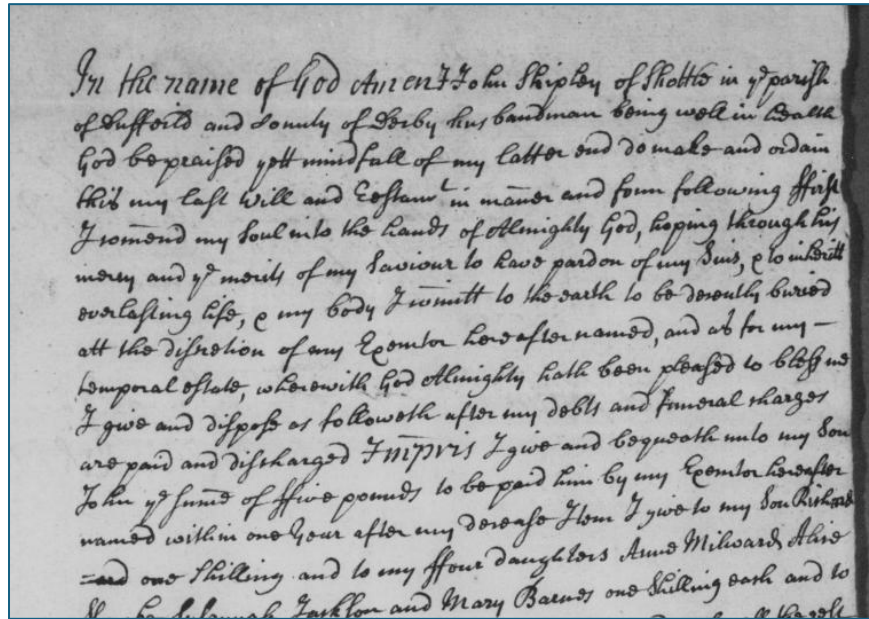 In the name of God Amen I John Shipley of Shottle in ye parish
of Duffeild and County of Derby husbandman being well in health
God be praised yett mindfull of my latter end do make and ordain
this my last Will and Testamt in maner and form following ffirst
I comend my Soul into the hands of Almighty God, hoping through his
mercy and ye merits of my Saviour to have pardon of my Sins, & to inheritt
everlasting life, & my body I comitt to the earth to be decently buried
att the discretion of my Executor hereafter named, and as for my —
temporal estate, wherewith God Almighty hath been pleased to bless me
I give and dispose as followeth after my debts and Funeral charges
are paid and discharged Impris I give and bequeath unto my Son
John ye sume of ffive pounds to be paid him by my Executor hereafter
named within one Year after my decease Item I give to my Son Richard
one Shilling and to my ffour daughters Anne Milward Alice
Susannah Jackson and Mary Barnes one Shilling each and to